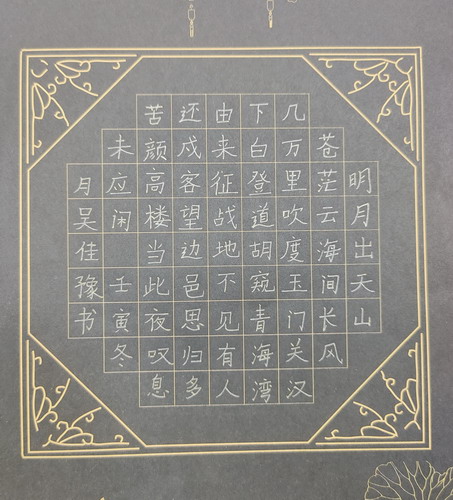 明月出天山
苍茫云海间长风
几万里吹度玉门关汉
下白登道胡窥青海湾
由来征战地不见有人
还戍客望边邑思归多
苦颜高楼当此夜叹息
未应闲 壬寅冬
月吴佳豫书